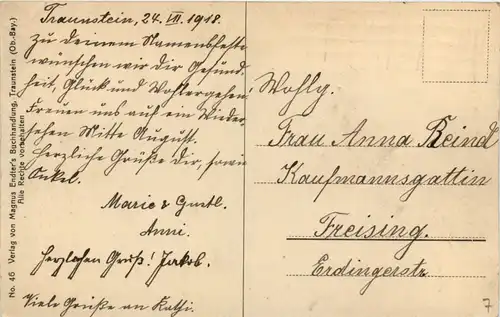 Traunstein, 24. VII. 1918.
Zu deinem Namensfeste
wünschen wir dir Gesund-
heit, Glück und Wohlergehen.
Freuen uns auf ein Wieder-
sehen Mitte August.
Herzliche Grüße dir, sowie
Onkel.
Marie &
Anni.
Herzlichen Gruß! Jakob.
Viele Grüße an Kathi.
No. 46 Verlag von Magnus Endter's Buchhandlung, Traunstein (Ob.-Bay.)
Alle Rechte vorbehalten
Wohlg.
Frau Anna Reindl
Kaufmannsgattin
Freising.
Erdingerstr.
7